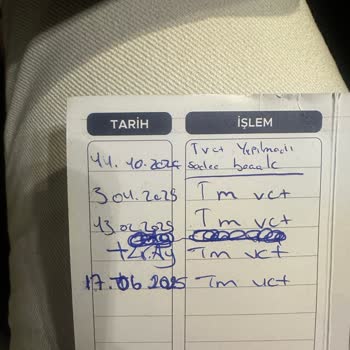 TARİH İŞLEM
11.10.2024 Tvct Yapılmadı
sadece bacak
3.01.2025 Tm vct
13.02.2025 Tm vct
Tm vct
17.06.2025 Tm vct